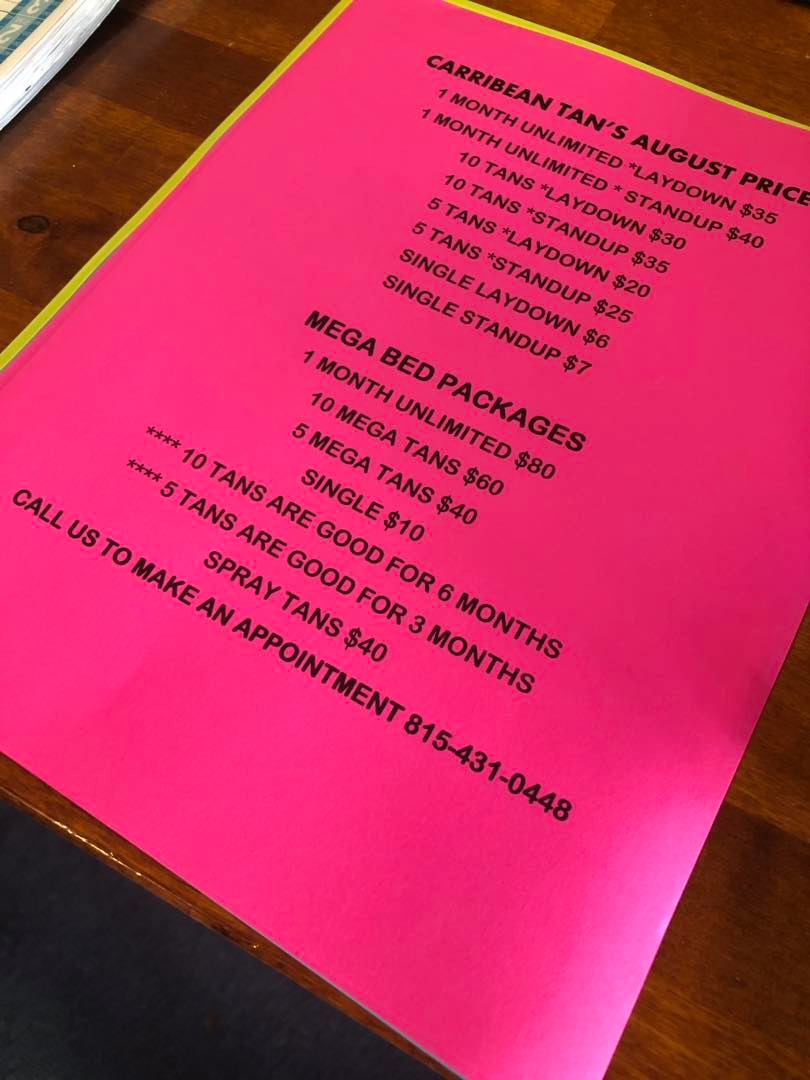 CARRIBEAN TAN'S AUGUST PRICE
1 MONTH UNLIMITED *LAYDOWN $35
1 MONTH UNLIMITED * STANDUP $40
10 TANS *LAYDOWN $30
10 TANS *STANDUP $35
5 TANS *LAYDOWN $20
5 TANS *STANDUP $25
SINGLE LAYDOWN $6
SINGLE STANDUP $7
MEGA BED PACKAGES
1 MONTH UNLIMITED $80
10 MEGA TANS $60
5 MEGA TANS $40
SINGLE $10
**** 10 TANS ARE GOOD FOR 6 MONTHS
**** 5 TANS ARE GOOD FOR 3 MONTHS
SPRAY TANS $40
CALL US TO MAKE AN APPOINTMENT 815-431-0448